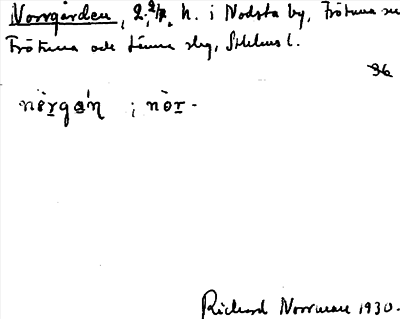 Norrgården, 2, 2/2, h. i Nodsta by, Frötuna sn
Frötuna och Länna skg, Sthlms l.
96
i nòr-
Richard Norrman 1930.